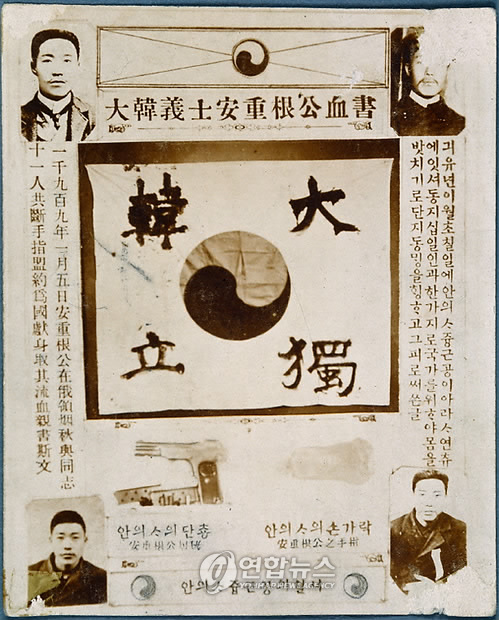 大韓義士安重根公血書
大韓
獨立
긔유년이월초칠일에안의ᄉᆞ즁근공이아라ᄉᆞ연츄
에잇셔동지십일인과한가지로국가를위ᄒᆞ야몸을
밧치기로단지동밍을ᄒᆡᆼᄒᆞ고그피로써쓴글
一千九百九年二月五日安重根公在俄領烟秋與同志
十一人共斷手指盟約爲國獻身取其流血親書斯文
안의ᄉᆞ의단춍
안의ᄉᆞ의손가락
安重根公之手指
연합뉴스
안의ᄉᆞ즁근공의혈셔